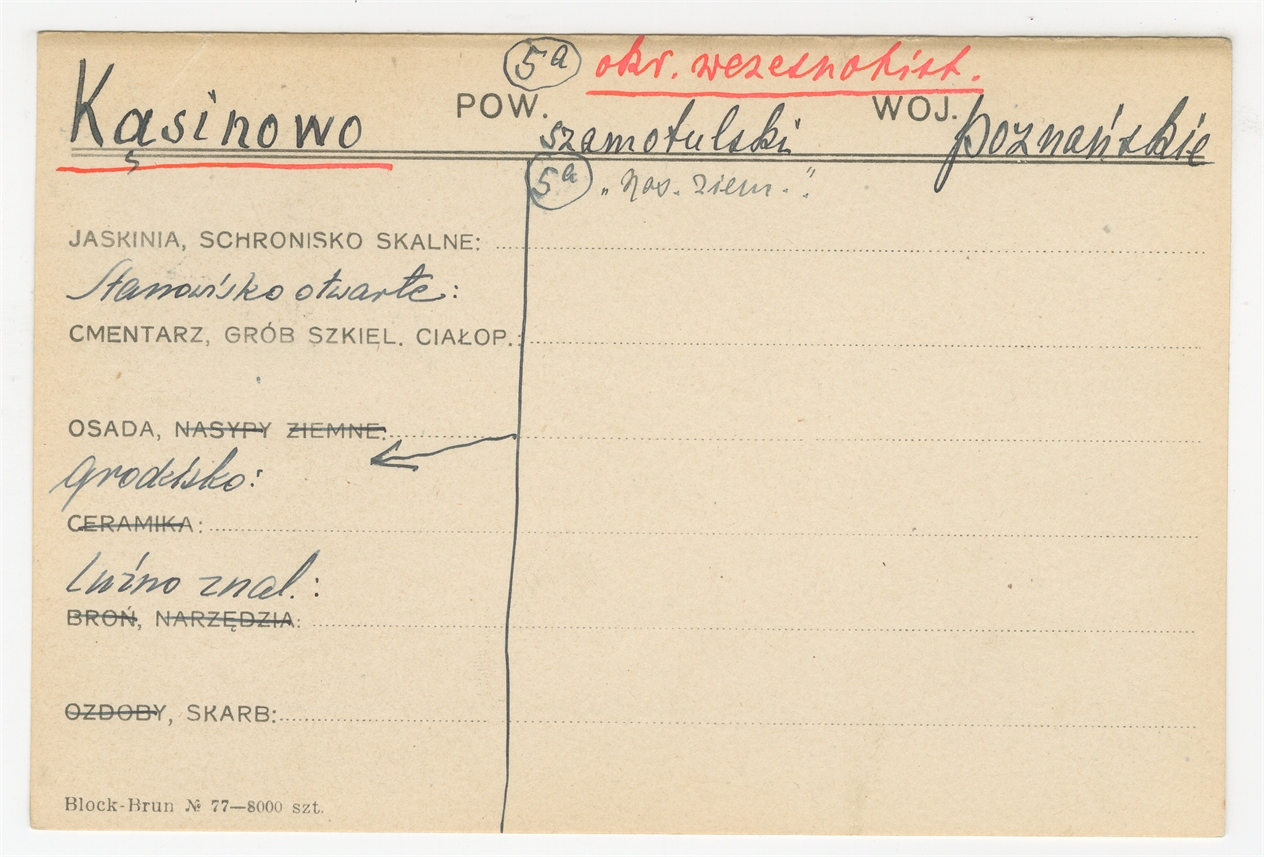 5a okr. wczesnohist.
Kąsinowo POW. szamotulski WOJ. poznańskie
5a „nas. ziem."
JASKINIA, SCHRONISKO SKALNE:
Stanowisko otwarte:
CMENTARZ, GRÓB SZKIEL. CIAŁOP.:
OSADA, NASYPY ZIEMNE:
Grodzisko:
CERAMIKA:
Luźno znal.:
BROŃ, NARZĘDZIA:
OZDOBY, SKARB:
Block-Brun № 77—8000 szt.